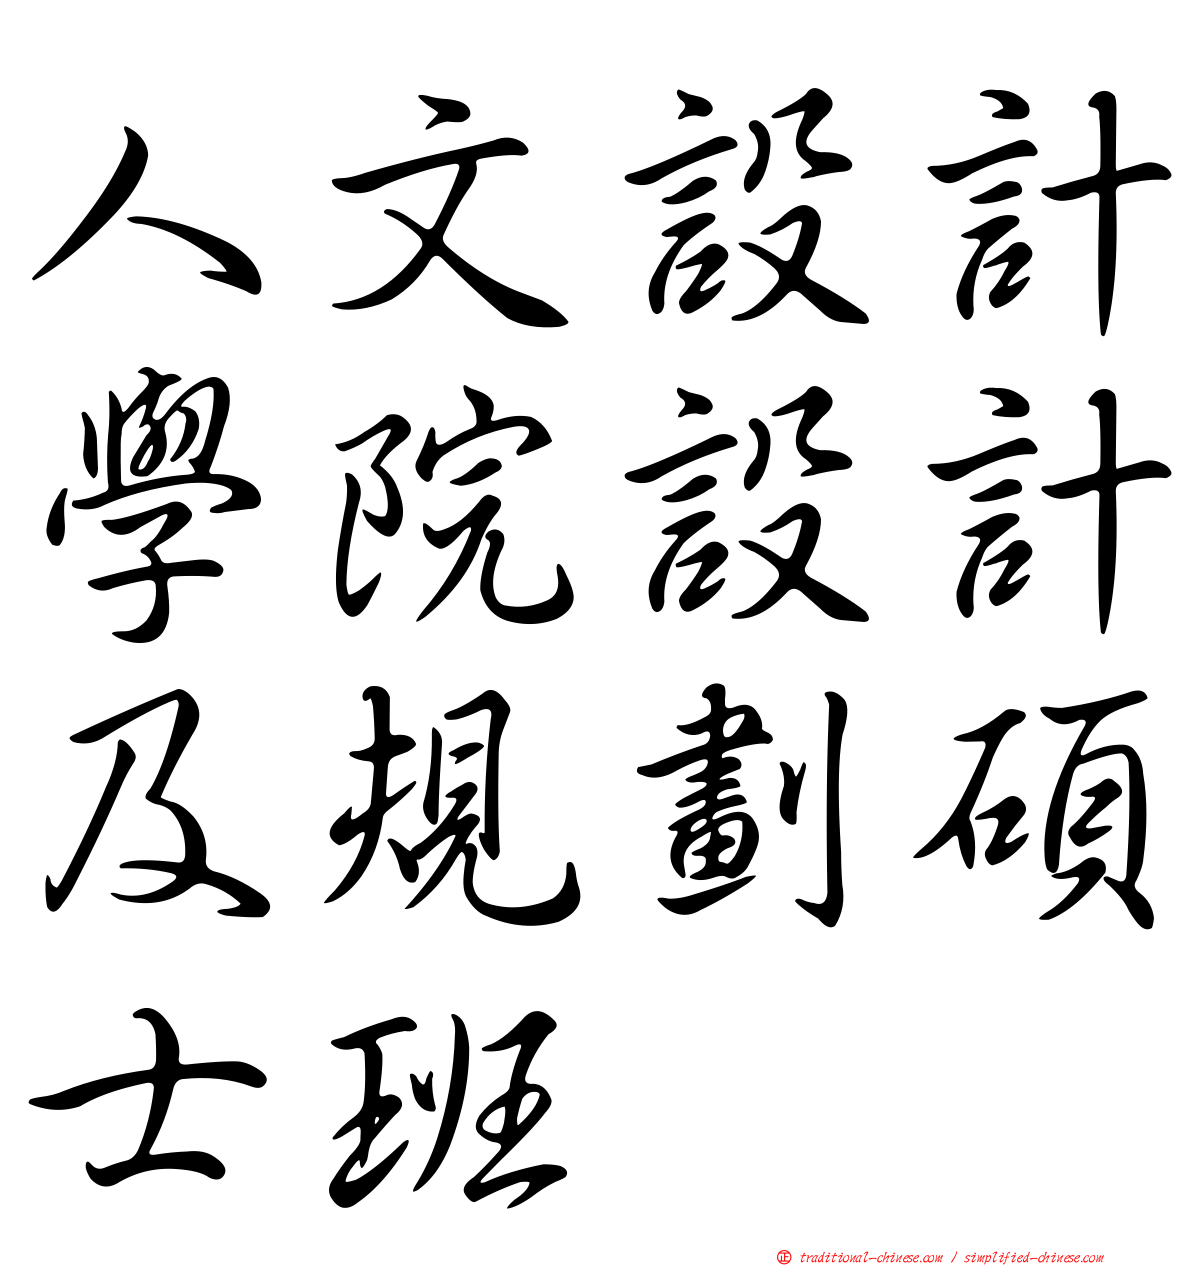 人文設計
學院設計
及規劃碩
士班
正 traditional-chinese.com / simplified-chinese.com